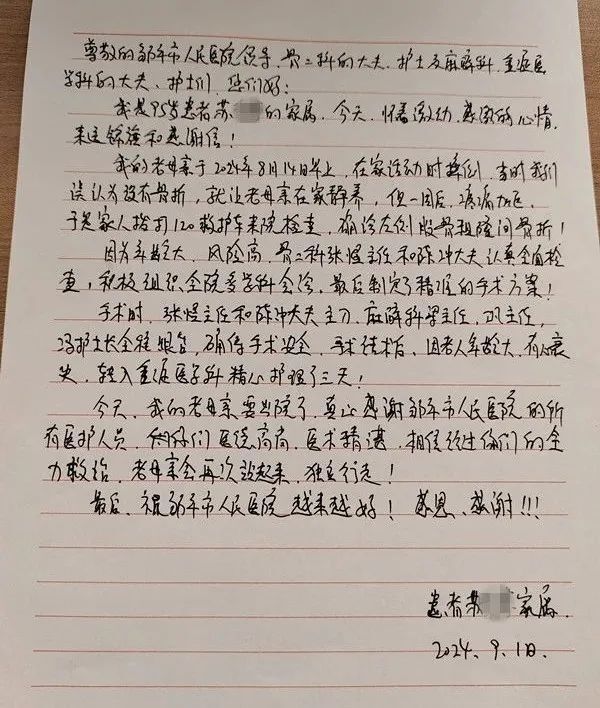 尊敬的邹平市人民医院领导、骨二科的大夫、护士及麻醉科、重症医
学科的大夫、护士们,您们好:
我是95岁患者苏的家属,今天,怀着激动、感激的心情,
来送锦旗和感谢信!
我的老母亲于2024年8月14日早上,在家活动时摔倒,当时我们
误认为没有骨折,就让老母亲在家静养,但一周后,疼痛加重,
于是家人拨打120救护车来院检查,确诊左侧股骨粗隆间骨折!
因为年龄大,风险高,骨二科张煜主任和陈冲大夫认真全面检
查,积极组织全院多学科会诊,最后制定了精准的手术方案!
手术时,张煜主任和陈冲大夫主刀,麻醉科主任、主任,
冯护士长全程跟台,确保手术安全,手术结束后,因老人年龄大,有心衰
史,转入重症医学科精心护理了三天!
今天,我的老母亲要出院了,真心感谢邹平市人民医院的所
有医护人员,你们医德高尚,医术精湛,相信经过你们的全
力救治,老母亲会再次站起来,独立行走!
最后,祝邹平市人民医院越来越好!感恩、感谢!!!
患者苏家属.
2024.9.1日.